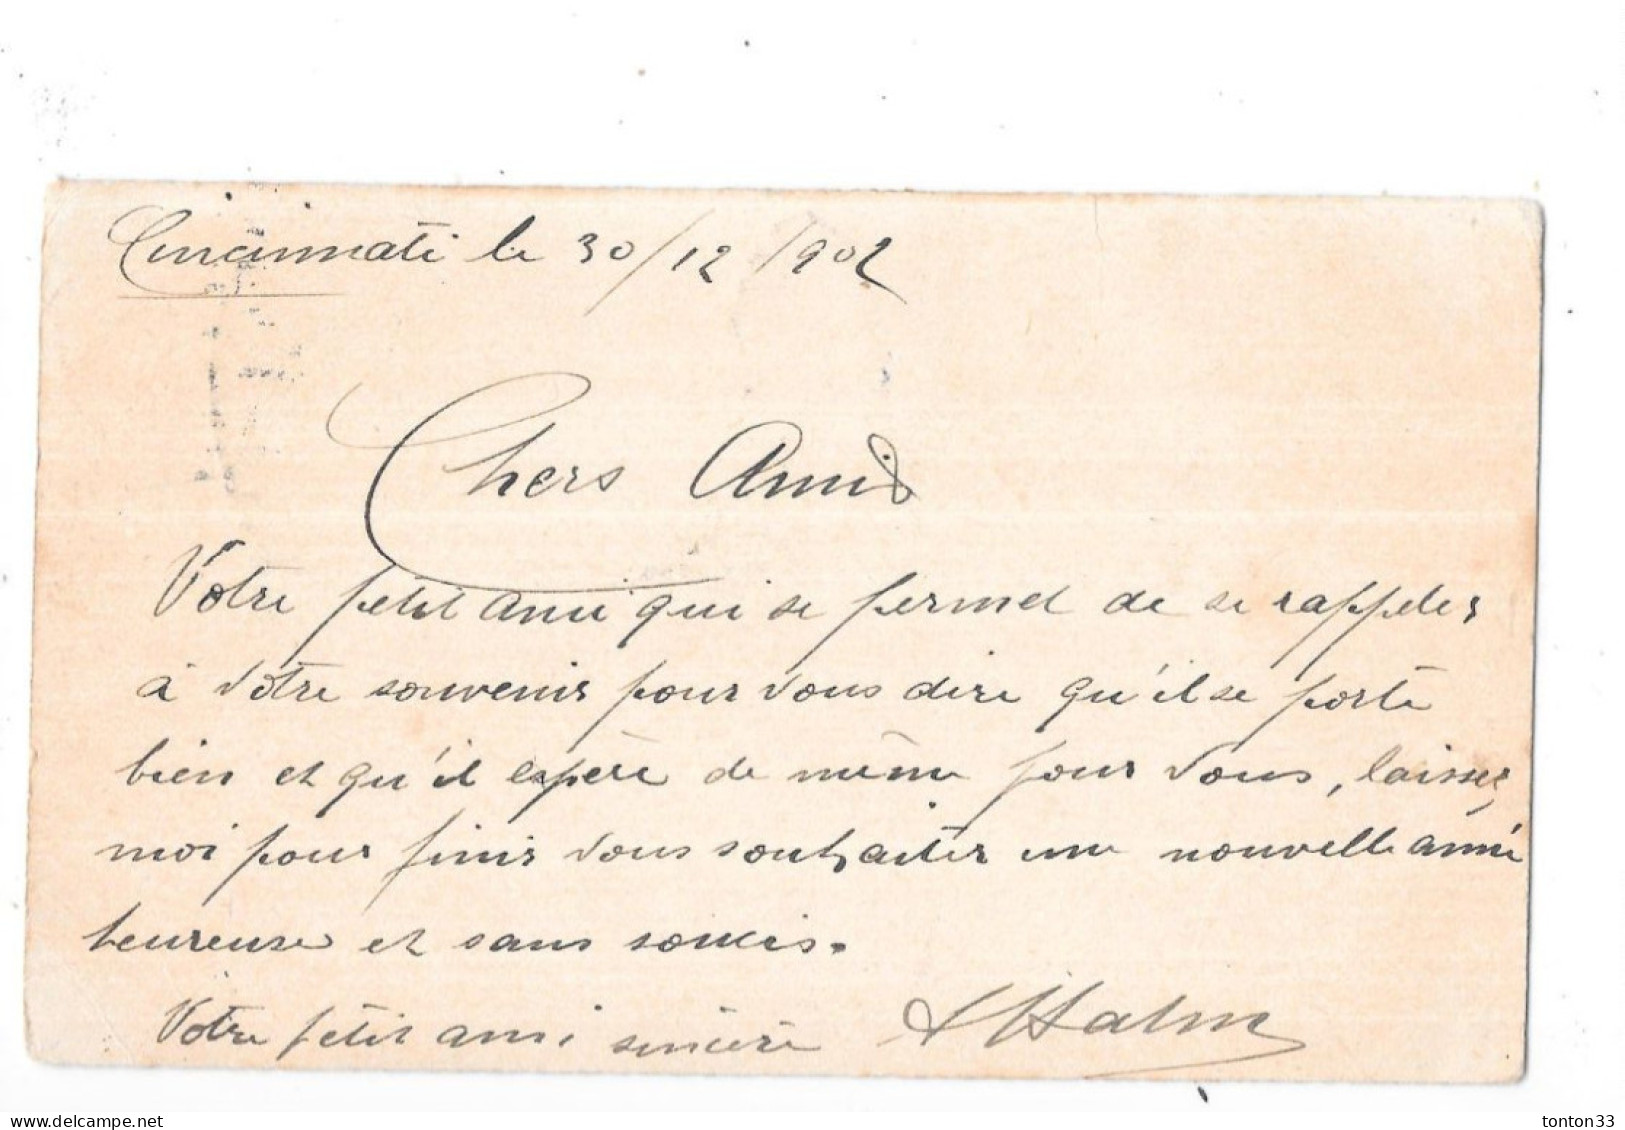 Cincinnati le 30/12/902
Chers Amis
Votre petit ami qui se permet de se rappeler
à votre souvenir pour vous dire qu'il se porte
bien et qu'il espère de même pour vous, laissez
moi pour finir vous souhaiter une nouvelle année
heureuse et sans soucis.
Votre petit ami sincère
delcampe.net
tonton33